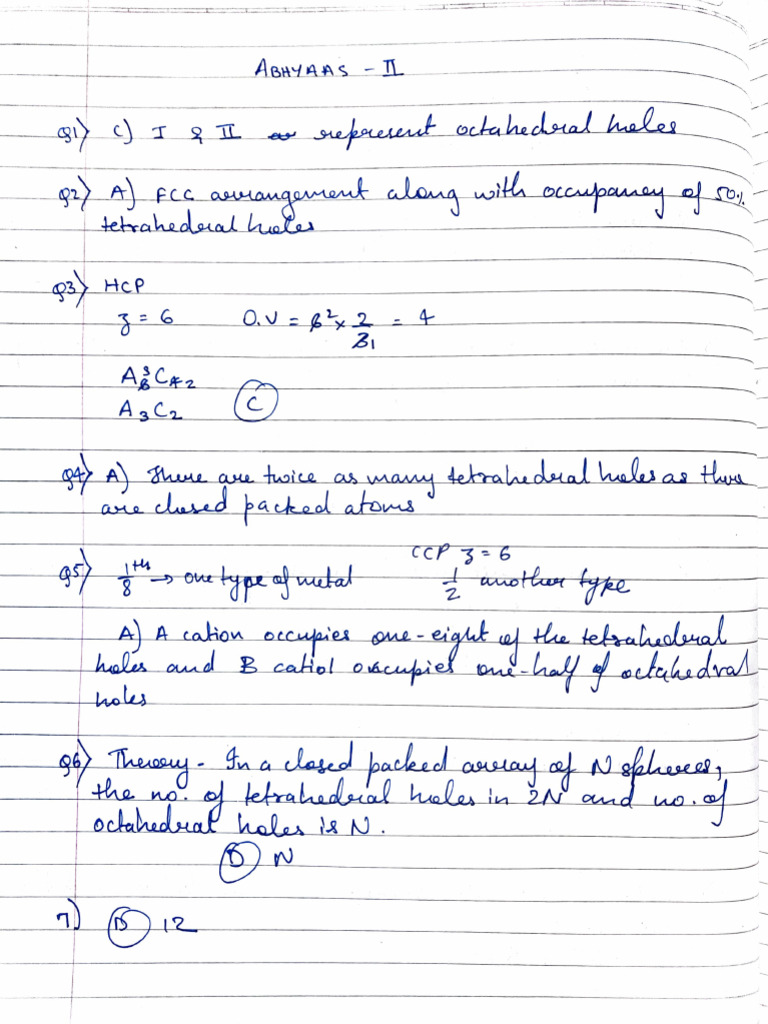 ABHYAAS - II
Q1) C) I & II represent octahedral holes
Q2) A) FCC arrangement along with occupancy of 50%
tetrahedral holes
Q3) HCP
z = 6 O.V = 6² × 2/3 = 4
A6 3 C4 2
A3C2 (C)
Q4) A) There are twice as many tetrahedral holes as there
are closed packed atoms
CCP z = 6
Q5) 1/8 th → one type of metal 1/2 another type
A) A cation occupies one-eight of the tetrahedral
holes and B catiol occupies one-half of octahedral
holes
Q6) Theory - In a closed packed array of N spheres,
the no. of tetrahedral holes in 2N and no. of
octahedral holes is N.
(D) N
7) (D) 12